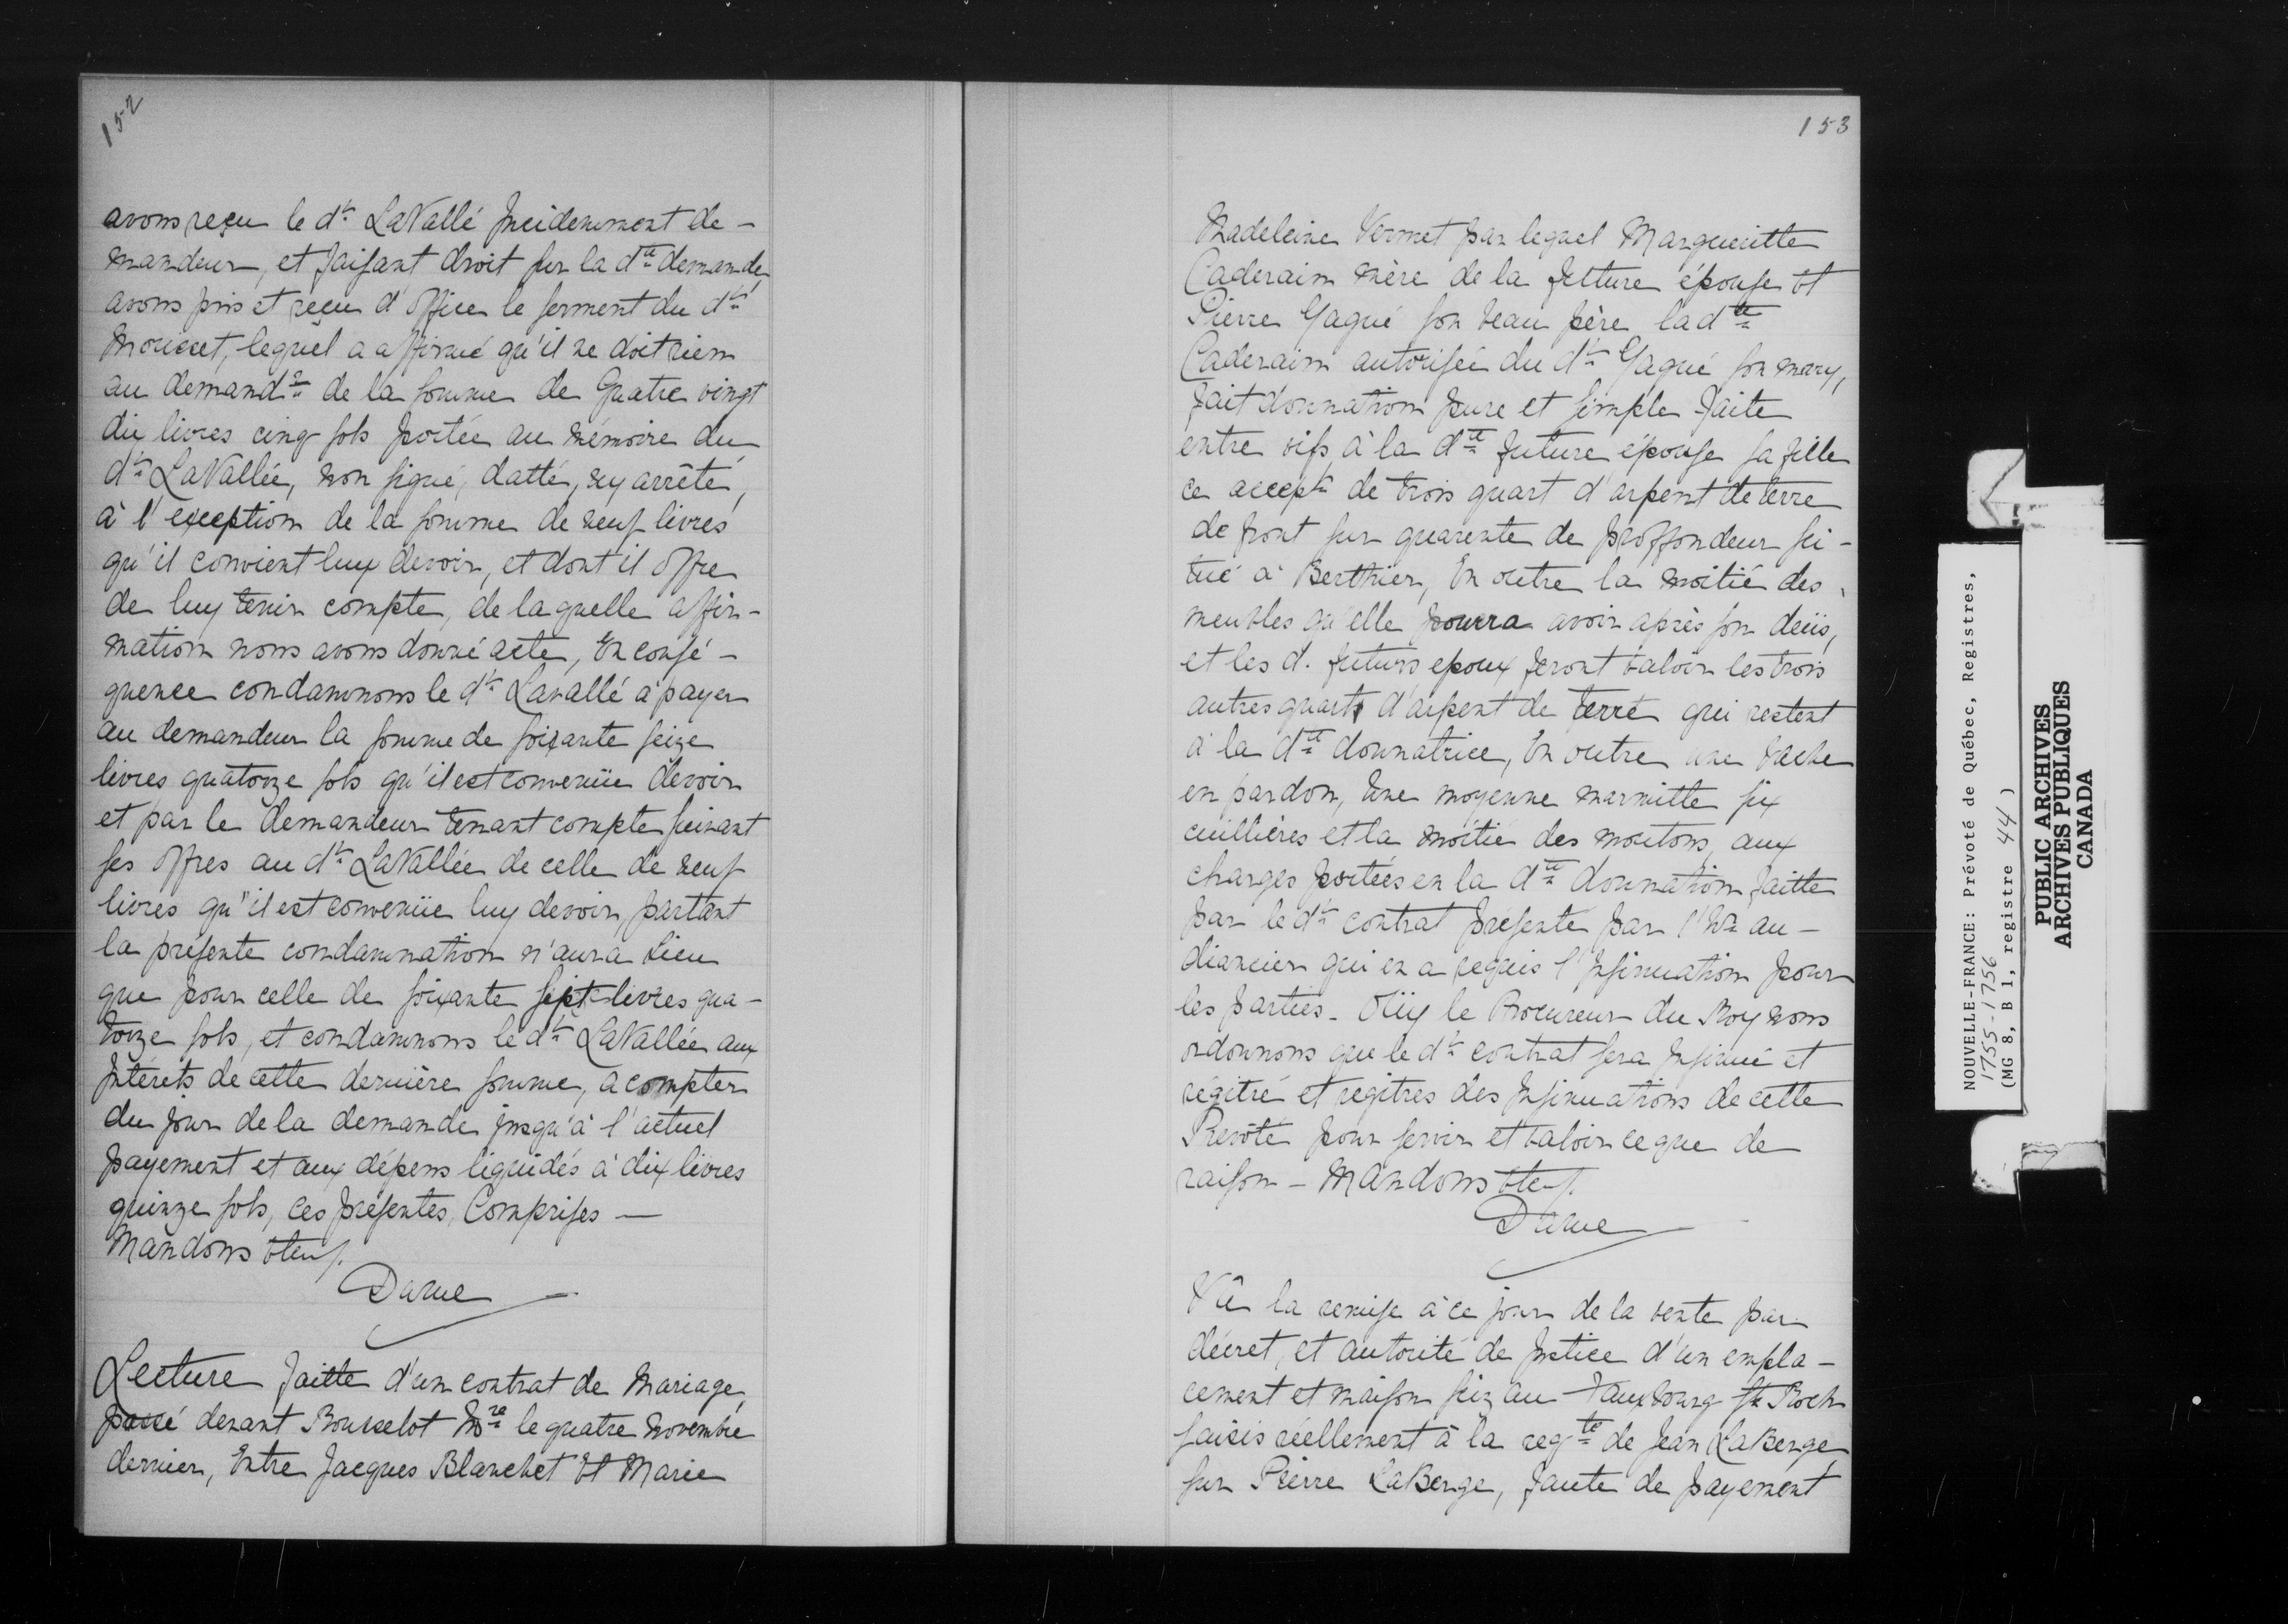 152
avons reçu le d.t LaVallé Incidemment de-
mandeur, et faisant droit sur la d.te demande,
avons pris et reçu d'office le serment du d.t
Mousset, lequel a affirmé qu'il ne doit rien
au demand.r de la somme de Quatre vingt
dix livres cinq sols portée au mémoire du
d.t LaVallée, non signé, datté, ny arrêté,
à l'exception de la somme de neuf livres
qu'il convient luy devoir, et dont il offre
de luy tenir compte, de laquelle affir-
mation nous avons donné acte, En consé-
quence condamnons le d.t Lavallé à payer
au demandeur la somme de soixante seize
livres quatorze sols qu'il est convenüe devoir
et par le demandeur tenant compte suivant
ses offres au d.t LaVallée de celle de neuf
livres qu'il est convenüe luy devoir, partant
la présente condamnation n'aura lieu
que pour celle de soixante sept livres qua-
torze sols, et condamnons le d.t LaVallée aux
Intérêts de cette dernière somme, à compter
du jour de la demande jusqu'à l'actuel
payement et aux dépens liquidés à dix livres
quinze sols, ces présentes, Comprises —
Mandons &tc.
Daine
Lecture faitte d'un contrat de Mariage
passé devant Rousselot N.re le quatre novembre
dernier, Entre Jacques Blanchet Et Marie
153
Madeleine Vermet par lequel Margueritte
Caderain mère de la future épouse Et
Pierre Gagné son beau père, la d.te
Caderain autorisée du d.t Gagné son mary,
fait donnation pure et simple faite
entre vifs à la d.te future épouse sa fille
ce accept.t de trois quart d'arpent de terre
de front sur quarente de proffondeur si-
tué à Berthier, En outre la moitié des
meubles qu'elle pourra avoir après son décès,
et les d. futurs epoux feront valoir les trois
autres quarts d'arpent de terre qui restent
à la d.te donnatrice, En outre une vache
en pardon, Une moyenne marmitte six
cuillières et la moitié des moutons, aux
charges portées en la d.te donnation faitte
par le d.t contrat présenté par l'h.er au-
diancier qui en a requis l'Insinuation pour
les parties. Oüy le Procureur du Roy nous
ordonnons que le d.t contrat sera Insinué et
régitré et regitres des Insinuations de cette
Prevôté pour servir et valoir ce que de
raison — Mandons &tc.
Daine
Vû la remise à ce jour de la vente par
décret, et autorité de Justice d'un empla-
cement et maison siz au fauxbourg St Roch
saisis réellement à la req.te de Jean LaBerge
sur Pierre LaBerge, faute de payement
NOUVELLE-FRANCE: Prévoté de Québec, Registres,
1755-1756
(MG 8, B 1, registre 44)
PUBLIC ARCHIVES
ARCHIVES PUBLIQUES
CANADA